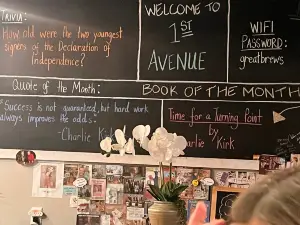 TRIVIA:
How old were the two youngest
signers of the Declaration of
Independence?
WELCOME TO
1ST
AVENUE
WIFI
PASSWORD:
greatbrews
Quote of the Month:
"Success is not guaranteed, but hard work
always improves the odds."
-Charlie Kirk
BOOK OF THE MONTH
Time for a Turning Point
by
Charlie Kirk